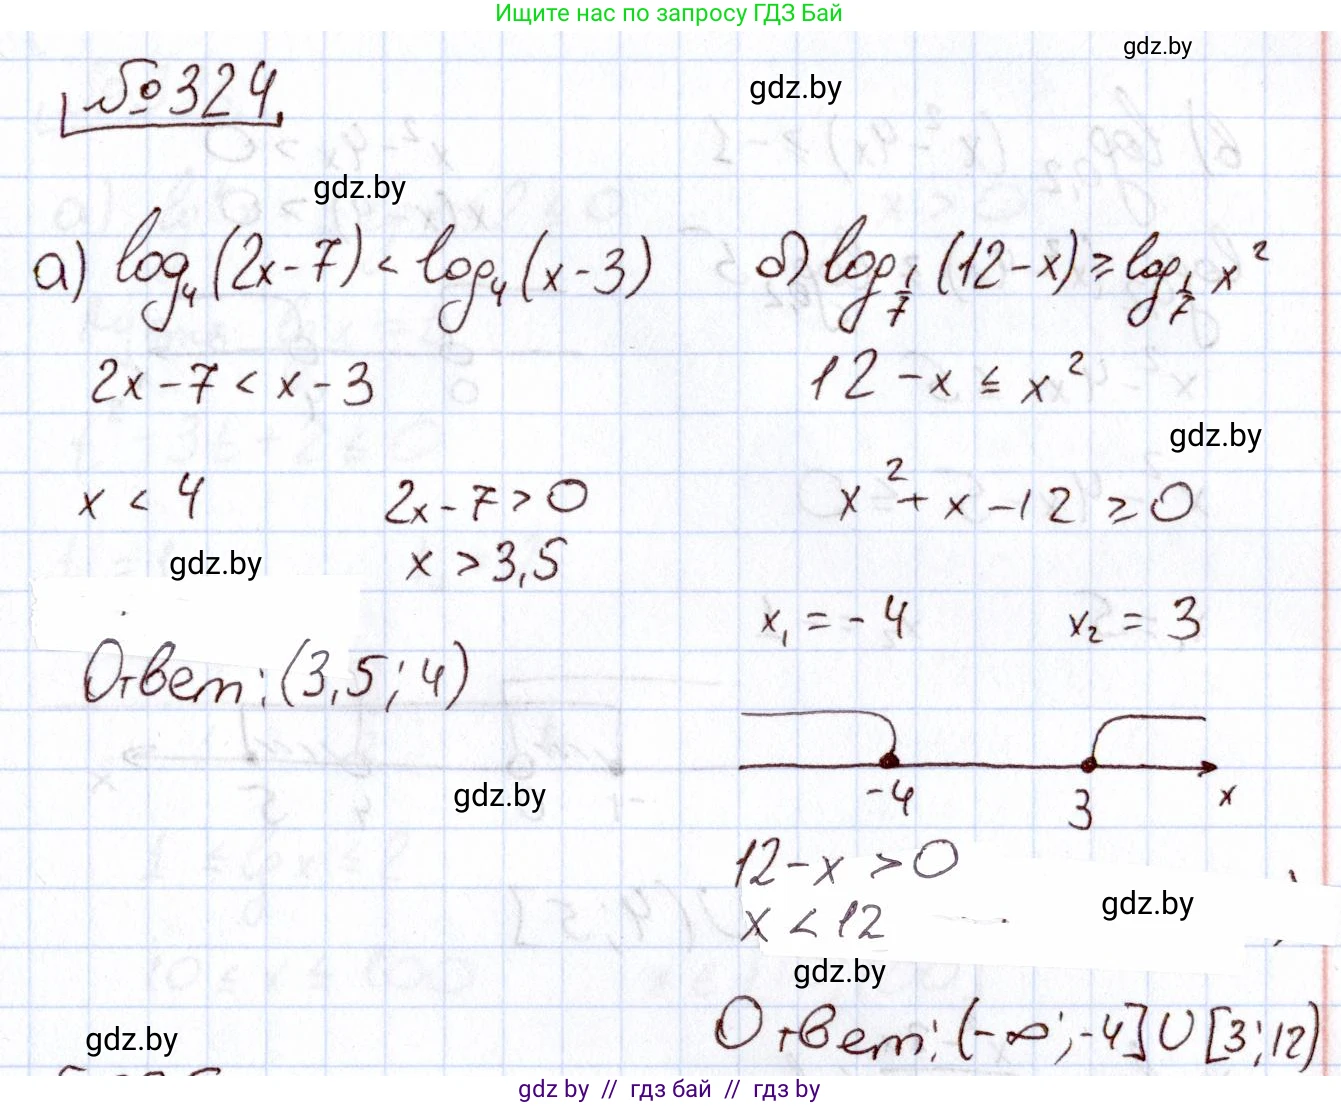 Ищите нас по запросу ГДЗ Бай
gdz.by
№324
gdz.by
gdz.by
а) log₄(2x-7) < log₄(x-3)
2x-7 < x-3
x < 4
2x-7 > 0
x > 3,5
gdz.by
Ответ: (3,5; 4)
gdz.by
б) log_{1/7}(12-x) ≥ log_{1/7} x²
12-x ≤ x²
gdz.by
x²+x-12 ≥ 0
x₁ = -4 x₂ = 3
-4 3 x
12-x > 0
x < 12
gdz.by
gdz.by
Ответ: (-∞; -4] ∪ [3; 12)
gdz.by
gdz by // гдз бай // гдз by